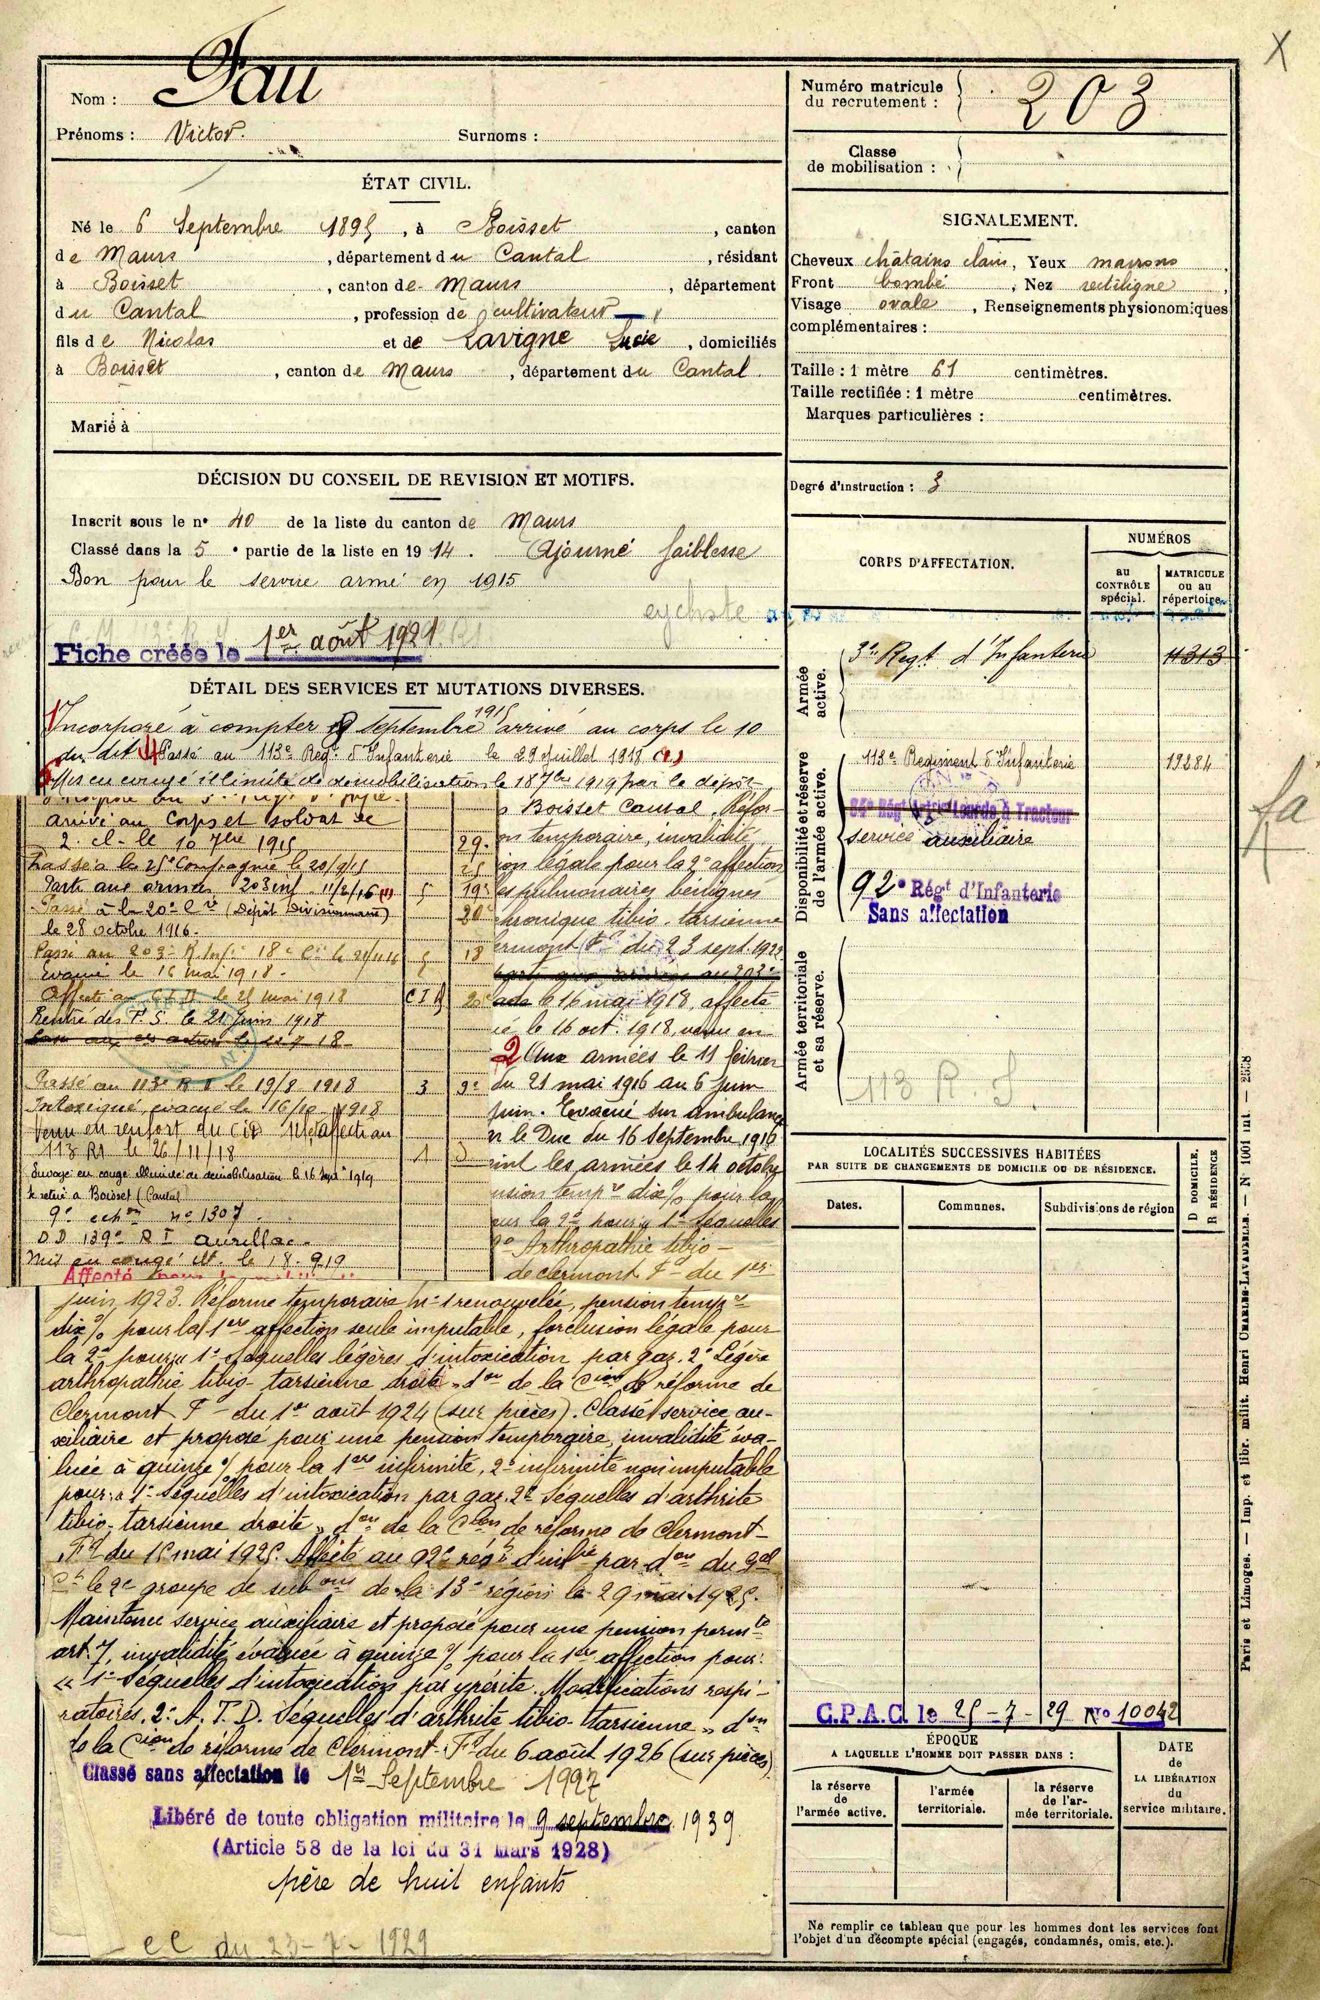 Nom : Fau
Prénoms : Victor. Surnoms :
ÉTAT CIVIL.
Né le 6 Septembre 1895, à Boisset, canton
de Maurs, département du Cantal, résidant
à Boisset, canton de Maurs, département
du Cantal, profession de cultivateur
fils de Nicolas et de Lavigne Lucie, domiciliés
à Boisset, canton de Maurs, département du Cantal.
Marié à
DÉCISION DU CONSEIL DE REVISION ET MOTIFS.
Inscrit sous le n° 40 de la liste du canton de Maurs
Classé dans la 5e partie de la liste en 1914. Ajourné faiblesse
Bon pour le service armé en 1915
cycliste
Fiche créée le 1er août 1921
DÉTAIL DES SERVICES ET MUTATIONS DIVERSES.
Incorporé à compter 9 septembre 1915 arrivé au corps le 10
du dit Passé au 113e Régt d'Infanterie le 29 Juillet 1918 (1)
Mis en congé illimité de démobilisation le 18 7bre 1919 par le dépôt
arrivé au Corps et soldat de
2. cl. le 10 7bre 1915
Passé à la 25e Compagnie le 20/9/15
Parti aux armées 203 inf. 11/2/16 (1) 5
Passé à la 20e Cie (Dépôt Divisionnaire)
le 28 octobre 1916.
Passé au 203e R. Inf. 18e Cie le 21/11/16 5
évacué le 16 mai 1918.
Affecté au C I D le 25 mai 1918 C I D
Rentré des P. S. le 21 Juin 1918
Passé au 113e R I le 19/8 1918 3 9e
Intoxiqué, évacué le 16/10 1918
Venu en renfort du CID et affecté au
113 RI le 26/11/18 1
Envoyé en congé illimité de démobilisation le 16 Sept 1919
se retire à Boisset (Cantal)
9e échon n° 1307
D D 139e R I Aurillac
Mis en congé ill. le 18.9.19
29
25
19
20
18
Boisset Cantal. Réfor-
on temporaire, invalidité
ion légale pour la 2e affection
es pulmonaires bénignes
chronique tibio-tarsienne
lermont Fd du 23 sept. 1922
parti aux armées au 203e
lade le 16 mai 1918, affecté
ué le 16 oct. 1918, venu en
2 Aux armées le 11 février
du 21 mai 1916 au 6 juin
juin. Evacué sur ambulance
r le Duc du 16 septembre 1916
oint les armées le 14 octobre
nsion tempre dix % pour la
our la 2e pour 1° Séquelles
2° Arthropathie tibio-
de clermont Fd du 1er
juin 1923. Réforme temporaire n° 1 renouvelée, pension tempre
dix % pour la 1ère affection seule imputable, forclusion légale pour
la 2e pour « 1° Séquelles légères d'intoxication par gaz. 2° Légère
arthropathie tibio-tarsienne droite » don de la Cion de réforme de
Clermont Fd du 1er août 1924 (sur pièces). Classé service au-
xiliaire et proposé pour une pension temporaire, invalidité éva-
luée à quinze % pour la 1ère infirmité, 2e infirmité non imputable
pour : « 1° Séquelles d'intoxication par gaz. 2° Séquelles d'arthrite
tibio-tarsienne droite » don de la Cion de réforme de Clermont-
Fd du 15 mai 1925. Affecté au 92e régt d'infrie par don du Gal
Ct le 2e groupe de subons de la 13e région le 29 mai 1925.
Maintenu service auxiliaire et proposé pour une pension permte
art. 7, invalidité évaluée à quinze % pour la 1ère affection pour :
« 1° Séquelles d'intoxication par ypérite. Modifications respi-
ratoires. 2° A. T. D. Séquelles d'arthrite tibio-tarsienne » don
de la Cion de réforme de Clermont-Fd du 6 août 1926 (sur pièces)
Classé sans affectation le 1er Septembre 1927
Libéré de toute obligation militaire le 9 septembre 1939
(Article 58 de la loi du 31 Mars 1928)
père de huit enfants
CC du 23-7-1929
X
Numéro matricule
du recrutement : 203
Classe
de mobilisation :
SIGNALEMENT.
Cheveux châtains clairs, Yeux marrons
Front bombé, Nez rectiligne,
Visage ovale, Renseignements physionomiques
complémentaires :
Taille : 1 mètre 61 centimètres.
Taille rectifiée : 1 mètre centimètres.
Marques particulières :
Degré d'instruction : 3
CORPS D'AFFECTATION.
NUMÉROS
AU CONTRÔLE spécial.
MATRICULE OU AU répertoire.
Armée active.
3e Régt d'Infanterie 11313
Disponibilité et réserve de l'armée active.
113e Régiment d'Infanterie 19284
service auxiliaire
92e Régt d'Infanterie
Sans affectation
Armée territoriale et sa réserve.
113 R. I.
fa
LOCALITÉS SUCCESSIVES HABITÉES
PAR SUITE DE CHANGEMENTS DE DOMICILE OU DE RÉSIDENCE.
Dates. Communes. Subdivisions de région
D DOMICILE.
R RÉSIDENCE
C.P.A.C. le 25-7-29 No 10042
ÉPOQUE
A LAQUELLE L'HOMME DOIT PASSER DANS :
la réserve de l'armée active.
l'armée territoriale.
la réserve de l'armée territoriale.
DATE de LA LIBÉRATION du service militaire.
Ne remplir ce tableau que pour les hommes dont les services font
l'objet d'un décompte spécial (engagés, condamnés, omis, etc.).
Paris et Limoges. — Imp. et libr. milit. Henri CHARLES-LAVAUZELLE. — N° 1001 int. — 2558